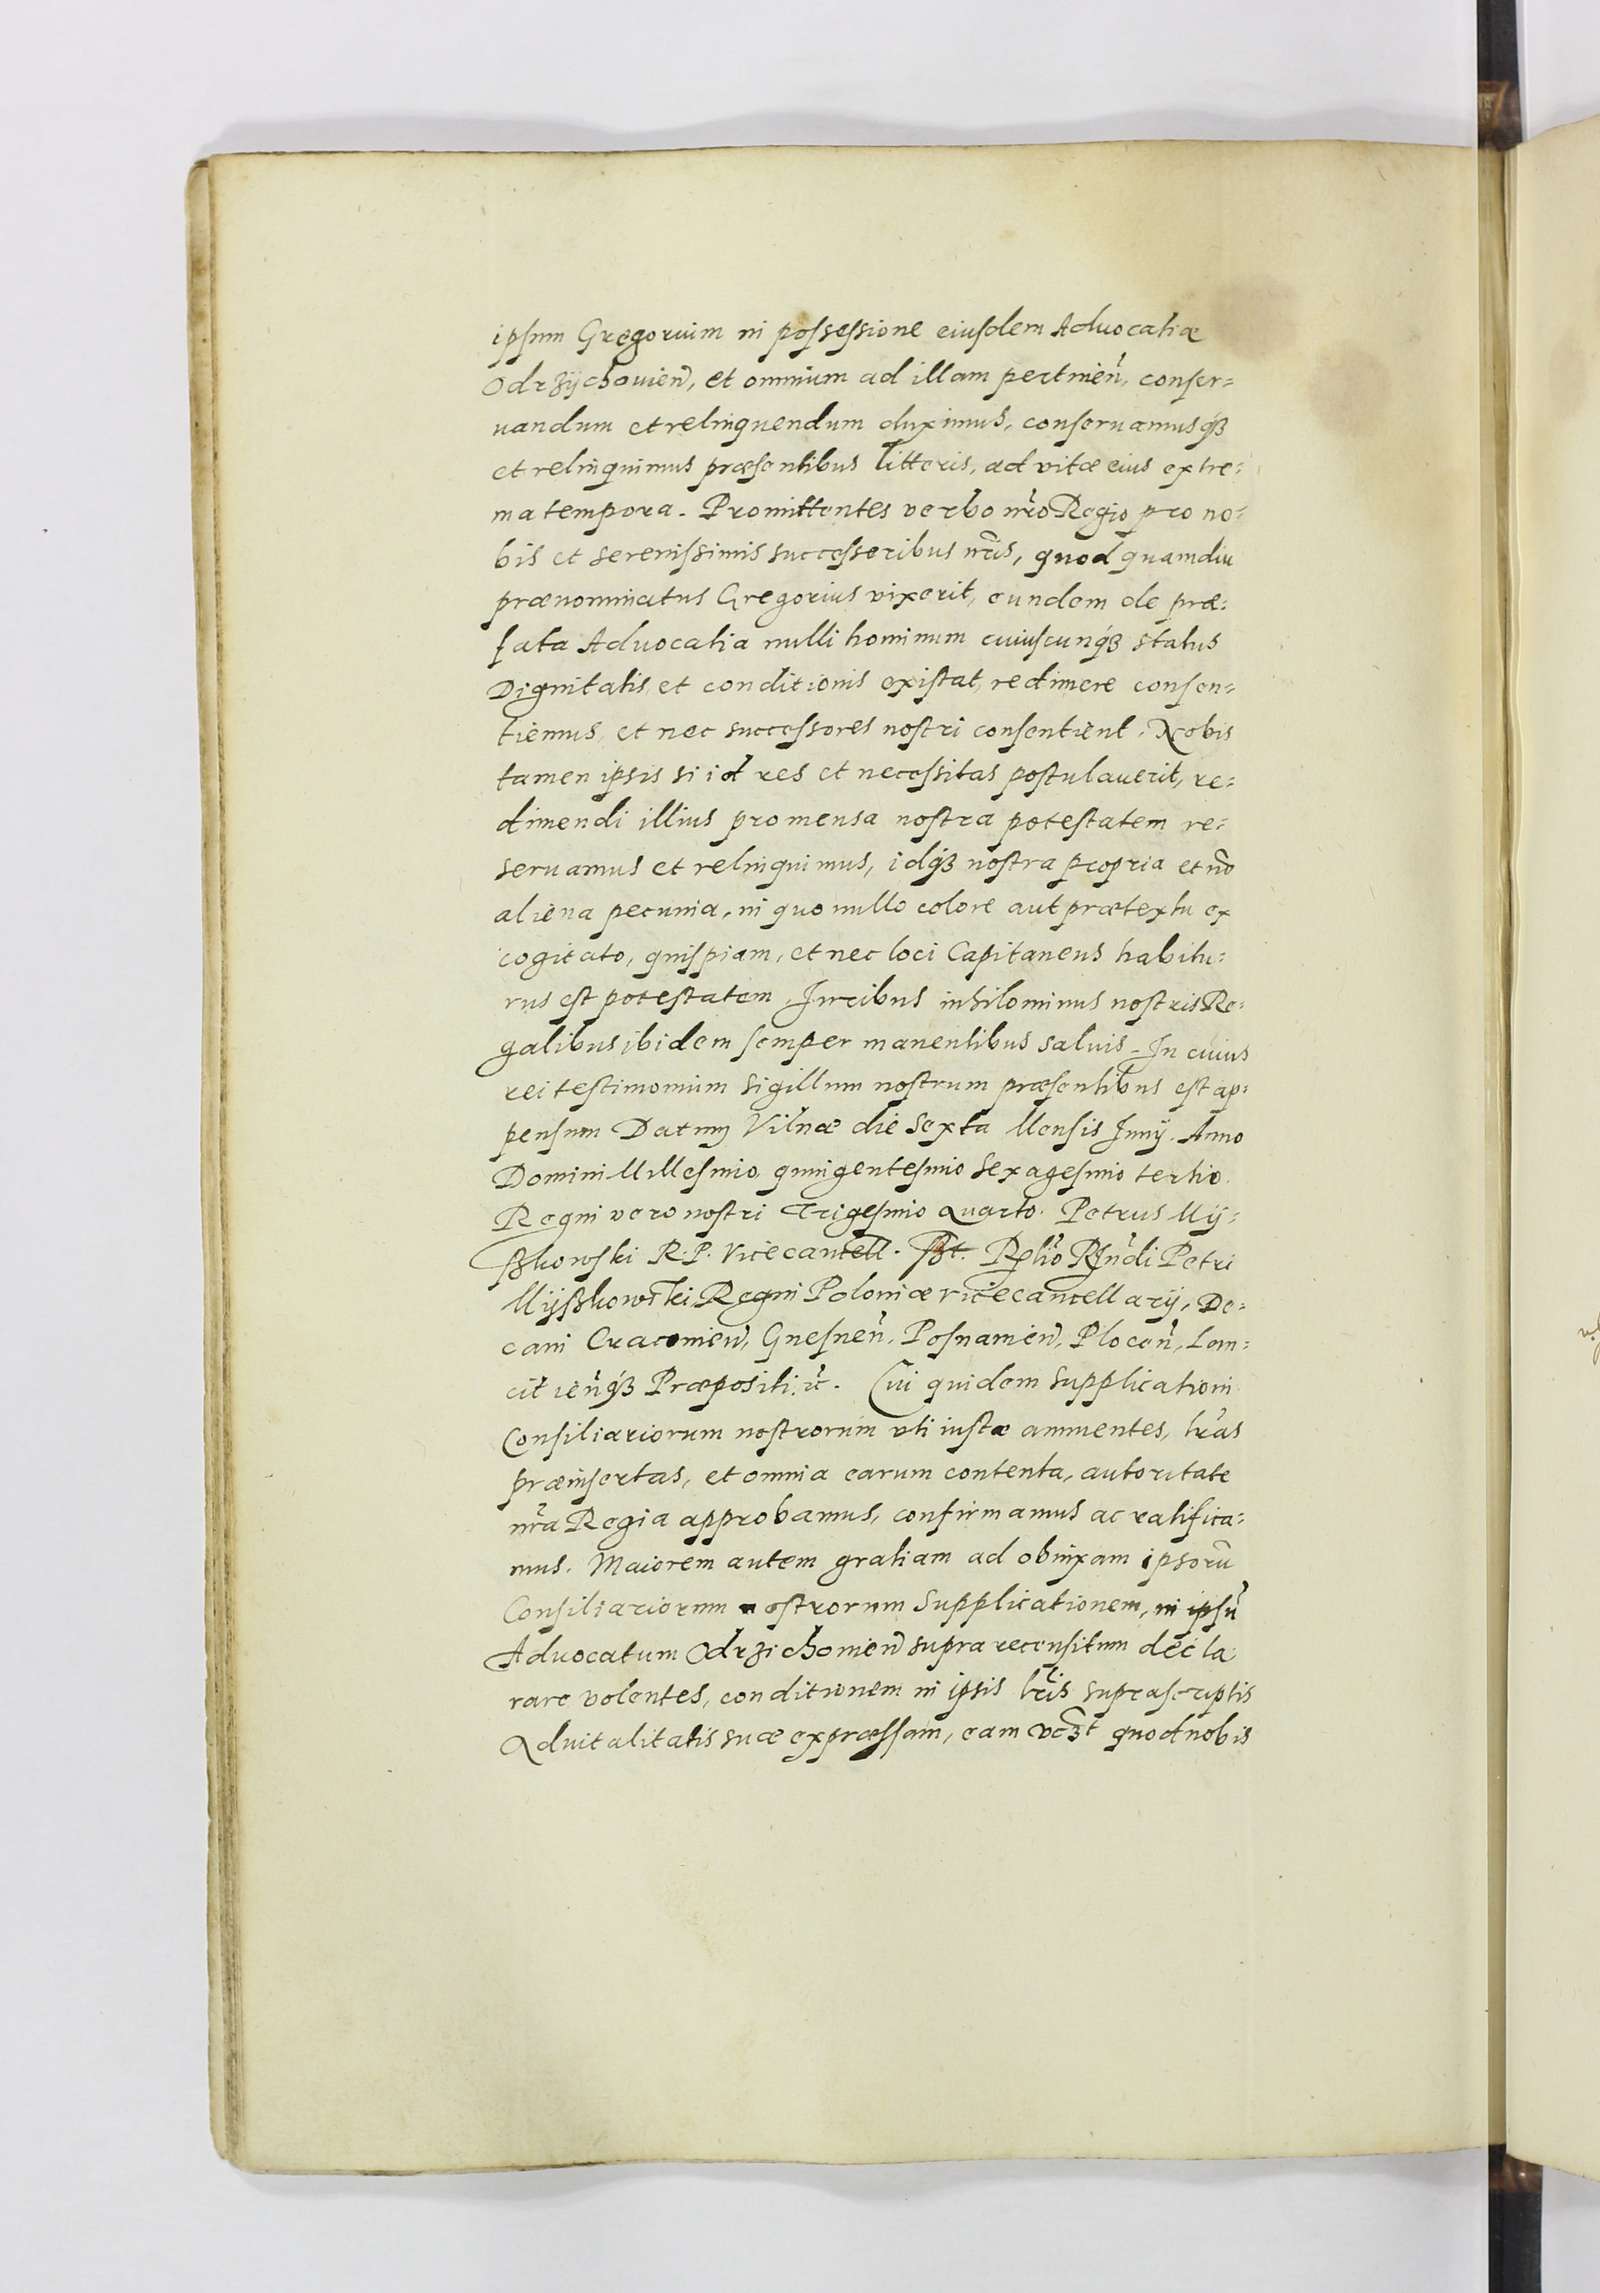 ipsum Gregorium in possessione eiusdem Advocatiæ
Odrzÿchovien̄, et omnium ad illam pertinen̄, conser=
uandum et relinquendum duximus, conseruamusq́ꝫ
et relinquimus præsentibus litteris, ad vitæ eius extre=
ma tempora. Promittentes verbo nr̄o Regio pro no=
bis et serenissimis successoribus nr̄is, quod quamdiu
prænominatus Gregorius vixerit, eundem de præ=
fata Advocatia nulli hominum cuiuscunq́ꝫ status
Dignitatis, et conditionis existat, redimere consen=
tiemus, et nec successores nostri consentient. Nobis
tamen ipsis si id res et necessitas postulauerit, re=
dimendi illius pro mensa nostra potestatem re=
seruamus et relinquimus, idq́ꝫ nostra propria et nō
aliena pecunia, in quo nullo colore aut prætextu ex
cogitato, quispiam, et nec loci Capitaneus habitu=
rus est potestatem, Iuribus inhilominus nostris Re=
galibus ibidem semper manentibus saluis. In cuius
rei testimonium sigillum nostrum præsentibus est ap=
pensum Datum Vilnæ die sexta Mensis Junÿ. Anno
Domini Millesimo quingentesimo sexagesimo tertio.
Regni vero nostri Trigesimo Quarto. Petrus Mÿ=
ßkowski R. P. Vicecancell. sßt. Rel̄io Rn̄di Petri
Mÿßkowski Regni Poloniæ vicecancellarÿ, De=
cani Cracouien̄, Gnesnen̄, Posnanien̄, Plocen̄, Lan=
citien̄q́ꝫ Præpositi ꝛc̄. Cui quidem supplicationi
Consiliariorum nostrorum vti iustæ annuentes, lr̄as
præinsertas, et omnia earum contenta, autoritate
nr̄a Regia approbamus, confirmamus ac ratifica=
mus. Maiorem autem gratiam ad obnixam ipsorū
Consiliariorum nostrorum supplicationem, in ipsū
Advocatum Odrzichouien̄ supra recensitum decla
rare volentes, conditionem in ipsis lr̄is suprascriptis
Advitalitatis suæ expræssam, eam vcꝫt quod nobis